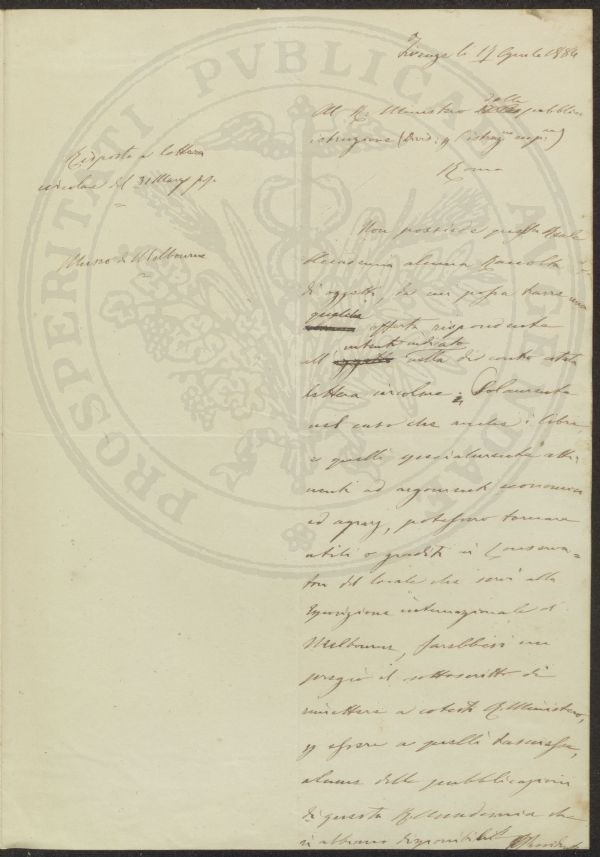 Firenze li 17 Aprile 1884
Al R. Ministero della pubblica
istruzione (Divis. p l'istruz.ne sup.re)
Roma
Risposta a lettera
circolare del 31 Marzo pp.
Museo di Melbourne
Non possiede questa Reale
Accademia alcuna Raccolta
di oggetti, da cui possa trarre una
qualche offerta rispondente
all' intento indicato nella di contro citata
lettera circolare; Solamente
nel caso che anche i libri
e quelli specialmente atti-
nenti ad argomenti economici
ed agrarj, potessero tornare
utili o graditi ai Conserva-
tori del locale che servì alla
Esposizione internazionale di
Melbourne, farebbesi un
pregio il sottoscritto di
rimettere a cotesto R. Ministero,
p essere a quelli trasmesse,
alcune delle pubblicazioni
di questa R. Accademia che
si abbiano disponibili.
PROSPERITATI PVBLICAE AVGENDAE